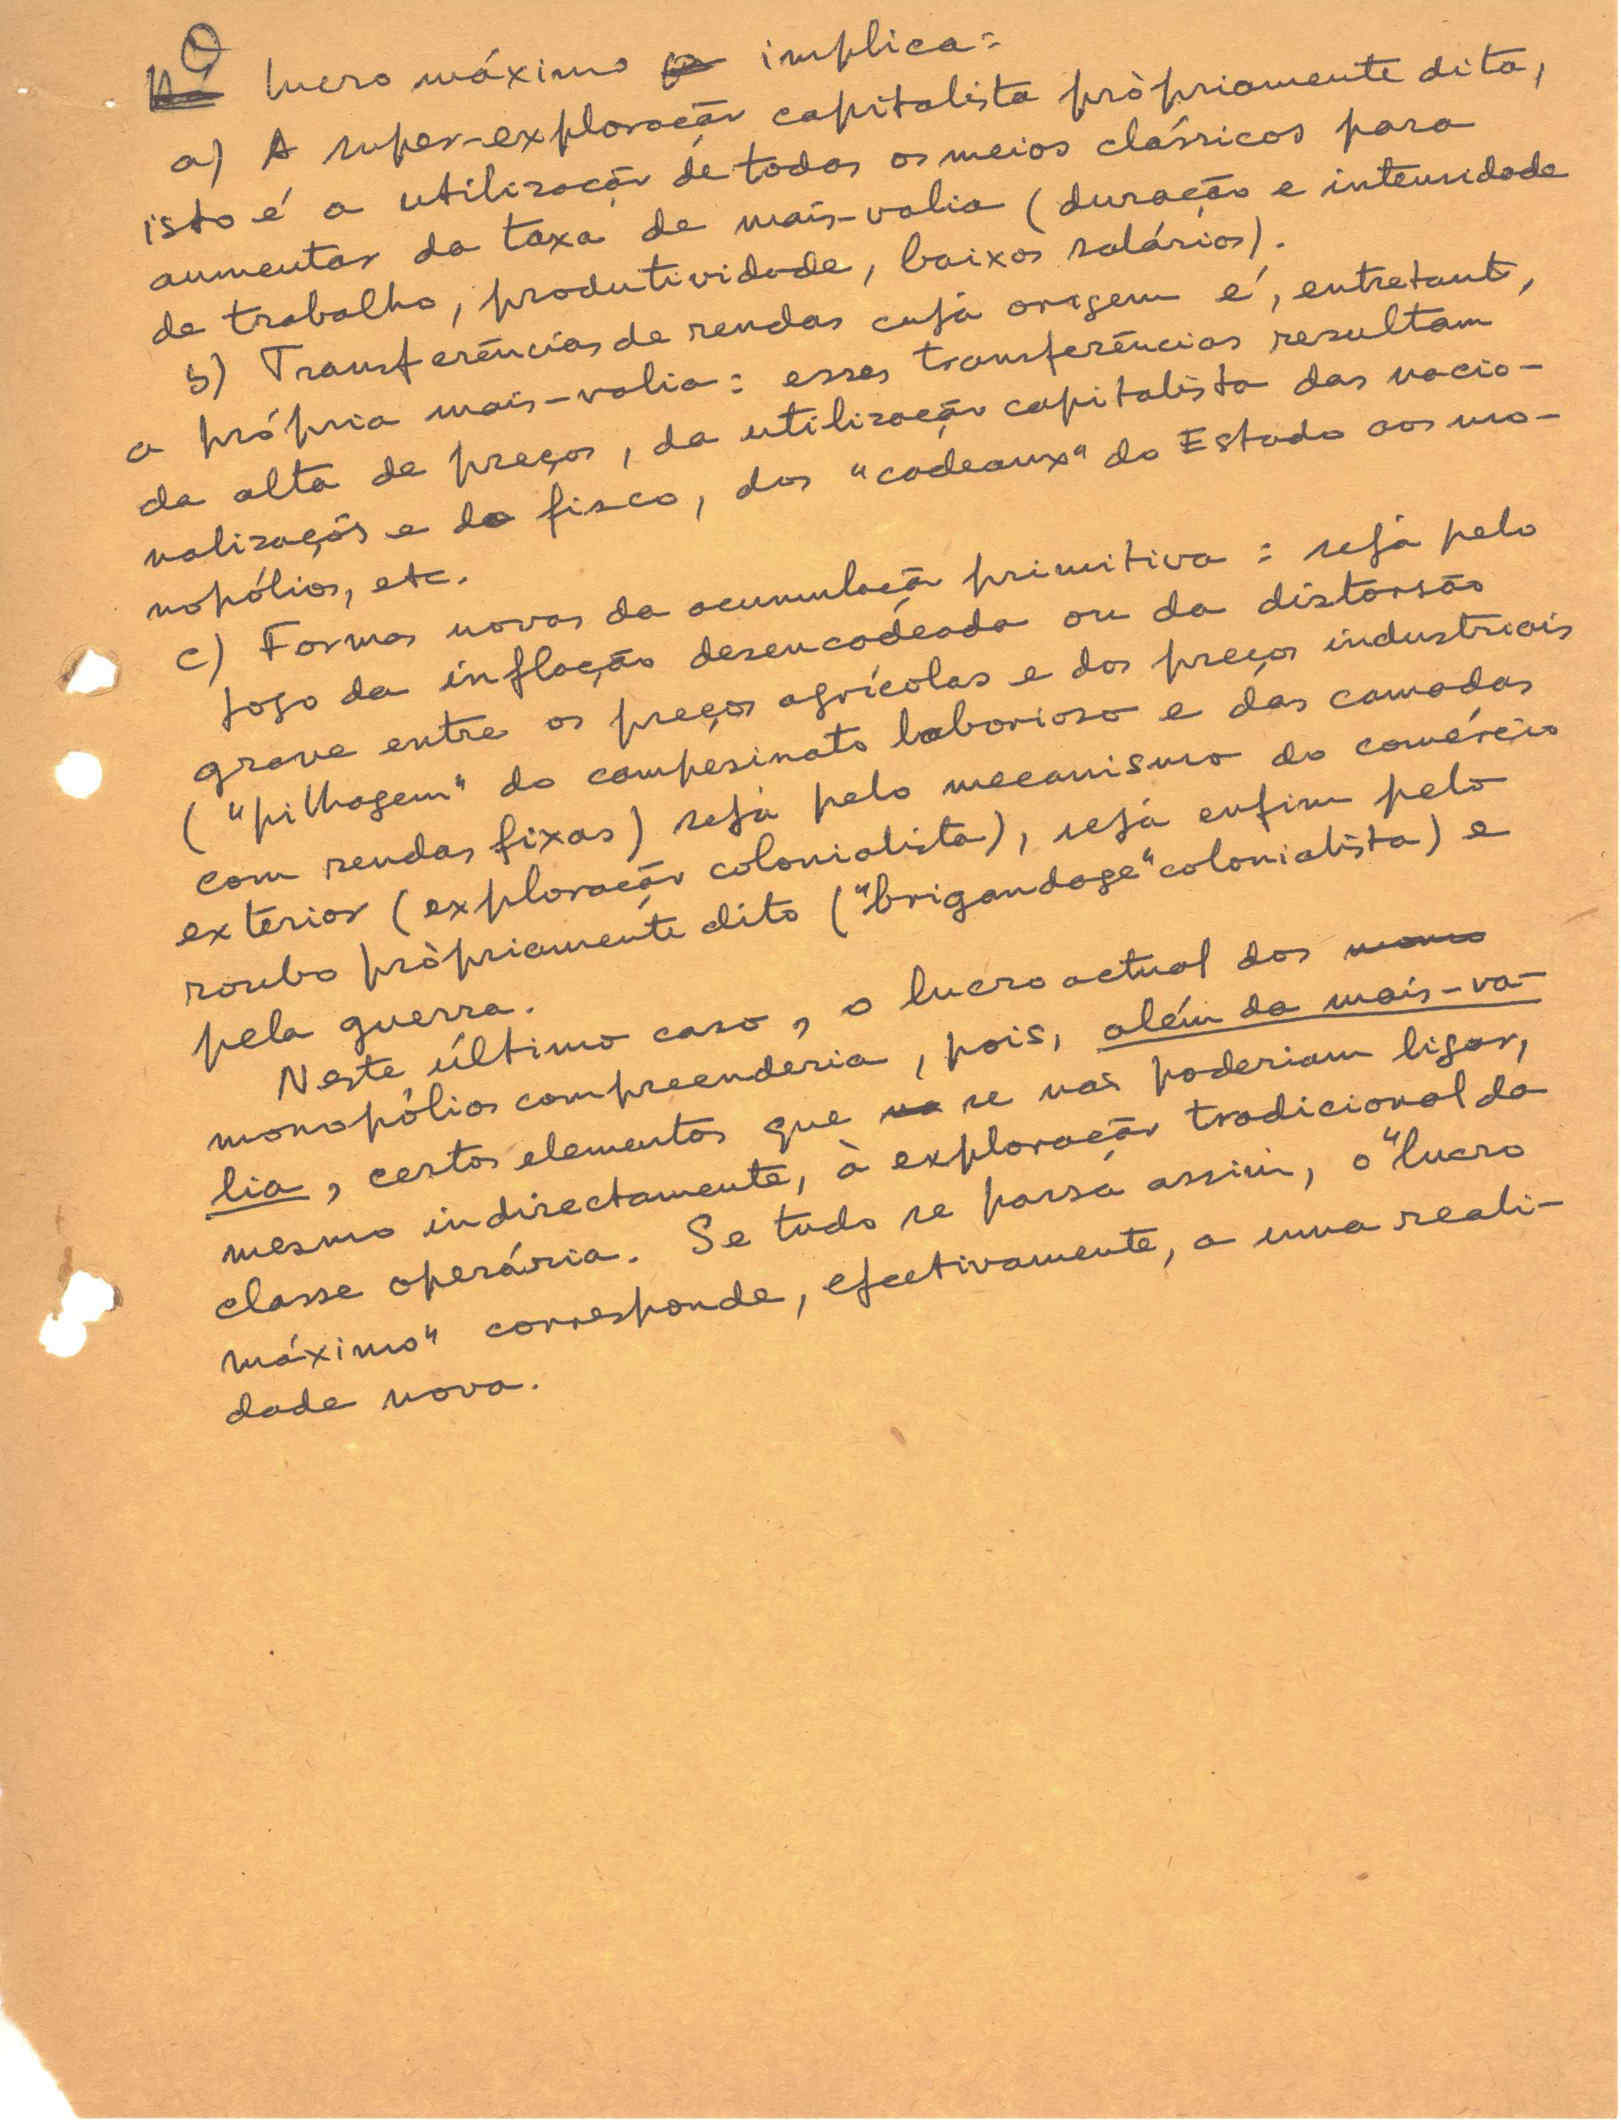 O lucro máximo implica:
a) A super-exploração capitalista pròpriamente dita,
isto é a utilização de todos os meios clássicos para
aumentar da taxa de mais-valia (duração e intensidade
de trabalho, produtividade, baixos salários).
b) Transferências de rendas cuja origem é, entretanto,
a própria mais-valia: esses transferências resultam
da alta de preços, da utilização capitalista das nacio-
nalizações e do fisco, dos "cadeaux" do Estado aos mo-
nopólios, etc.
c) Formas novas da acumulação primitiva: seja pelo
jogo da inflação desencadeada ou da distorsão
grave entre os preços agrícolas e dos preços industriais
("pilhagem" do campesinato laborioso e das camadas
com rendas fixas) seja pelo mecanismo do comércio
exterior (exploração colonialista), seja enfim pelo
roubo pròpriamente dito ("brigandage" colonialista) e
pela guerra.
Neste último caso, o lucro actual dos
monopólios compreenderia, pois, além da mais-va-
lia, certos elementos que se não poderiam ligar,
mesmo indirectamente, à exploração tradicional da
classe operária. Se tudo se passa assim, o "lucro
máximo" corresponde, efectivamente, a uma reali-
dade nova.